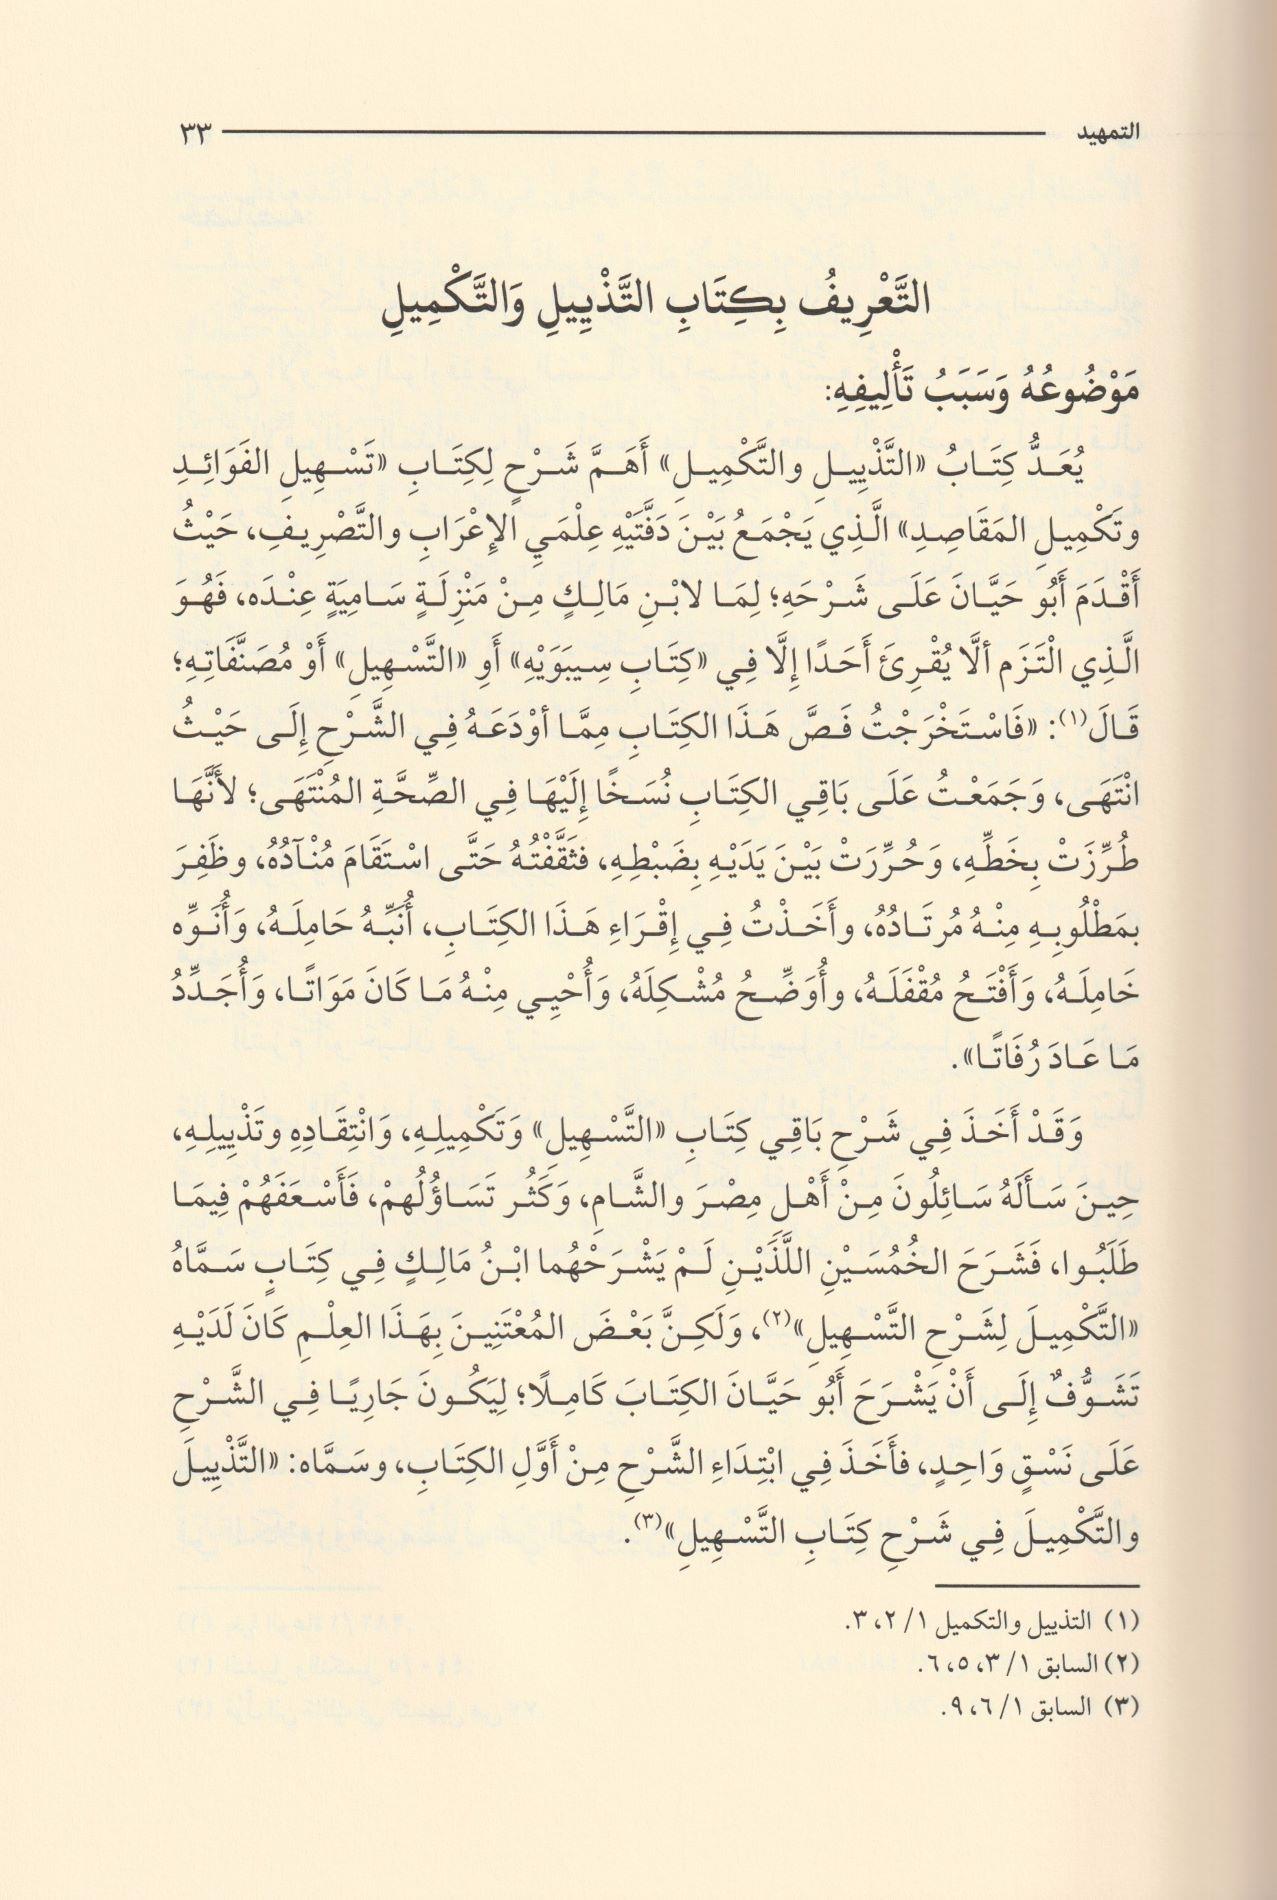 التمهيد ٣٣
التَّعْرِيفُ بِكِتَابِ التَّذْيِيلِ وَالتَّكْمِيلِ
مَوْضُوعُهُ وَسَبَبُ تَأْلِيفِهِ:
يُعَدُّ كِتَابُ «التَّذْيِيلِ والتَّكْمِيلِ» أَهَمَّ شَرْحٍ لِكِتَابِ «تَسْهِيلِ الفَوَائِدِ
وتَكْمِيلِ المَقَاصِدِ» الَّذِي يَجْمَعُ بَيْنَ دَفَّتَيْهِ عِلْمَيِ الإِعْرَابِ والتَّصْرِيفِ، حَيْثُ
أَقْدَمَ أَبُو حَيَّانَ عَلَى شَرْحَهِ؛ لِمَا لابْنِ مَالِكٍ مِنْ مَنْزِلَةٍ سَامِيَةٍ عِنْدَه، فَهُوَ
الَّذِي الْتَزَم ألَّا يُقْرِئَ أَحَدًا إِلَّا فِي «كِتَابِ سِيبَوَيْهِ» أَوِ «التَّسْهِيلِ» أَوْ مُصَنَّفَاتِهِ؛
قَالَ(١): «فَاسْتَخْرَجْتُ فَصَّ هَذَا الكِتَابِ مِمَّا أوْدَعَهُ فِي الشَّرْحِ إِلَى حَيْثُ
انْتَهَى، وَجَمَعْتُ عَلَى بَاقِي الكِتَابِ نُسَخًا إِلَيْهَا فِي الصِّحَّةِ المُنْتَهَى؛ لأَنَّهَا
طُرِّزَتْ بِخَطِّهِ، وَحُرِّرَتْ بَيْنَ يَدَيْهِ بِضَبْطِهِ، فثَقَّفْتُهُ حَتَّى اسْتَقَامَ مُنْآدُهُ، وظَفِرَ
بمَطْلُوبِهِ مِنْهُ مُرتَادُهُ، وأَخَذْتُ فِي إِقْرَاءِ هَذَا الكِتَابِ، أُنَبِّهُ حَامِلَهُ، وَأُنَوِّه
خَامِلَهُ، وَأَفْتَحُ مُقْفَلَهُ، وأُوَضِّحُ مُشْكِلَهُ، وَأُحْيِي مِنْهُ مَا كَانَ مَوَاتًا، وَأُجَدِّدُ
مَا عَادَ رُفَاتًا».
وَقَدْ أَخَذَ فِي شَرْحِ بَاقِي كِتَابِ «التَّسْهِيلِ» وَتَكْمِيلِهِ، وَانْتِقَادِهِ وتَذْيِيلِهِ،
حِينَ سَأَلَهُ سَائِلُونَ مِنْ أَهْلِ مِصْرَ والشَّامِ، وَكَثُر تَسَاؤُلُهمْ، فَأَسْعَفَهُمْ فِيمَا
طَلَبُوا، فَشَرَحَ الخُمُسَيْنِ اللَّذَيْنِ لَمْ يَشْرَحْهُما ابْنُ مَالِكٍ فِي كِتَابٍ سَمَّاهُ
«التَّكْمِيلَ لِشَرْحِ التَّسْهِيلِ»(٢)، وَلَكِنَّ بَعْضَ المُعْتَنِينَ بِهَذَا العِلْمِ كَانَ لَدَيْهِ
تَشَوُّفٌ إِلَى أَنْ يَشْرَحَ أَبُو حَيَّانَ الكِتَابَ كَامِلًا؛ لِيَكُونَ جَارِيًا فِي الشَّرْحِ
عَلَى نَسْقٍ وَاحِدٍ، فأَخَذَ فِي ابْتِدَاءِ الشَّرْحِ مِنْ أَوَّلِ الكِتَابِ، وسَمَّاه: «التَّذْيِيلَ
والتَّكْمِيلَ فِي شَرْحِ كِتَابِ التَّسْهِيلِ»(٣).
(١) التذييل والتكميل ١/ ٢، ٣.
(٢) السابق ١/ ٣، ٥، ٦.
(٣) السابق ١/ ٦، ٩.